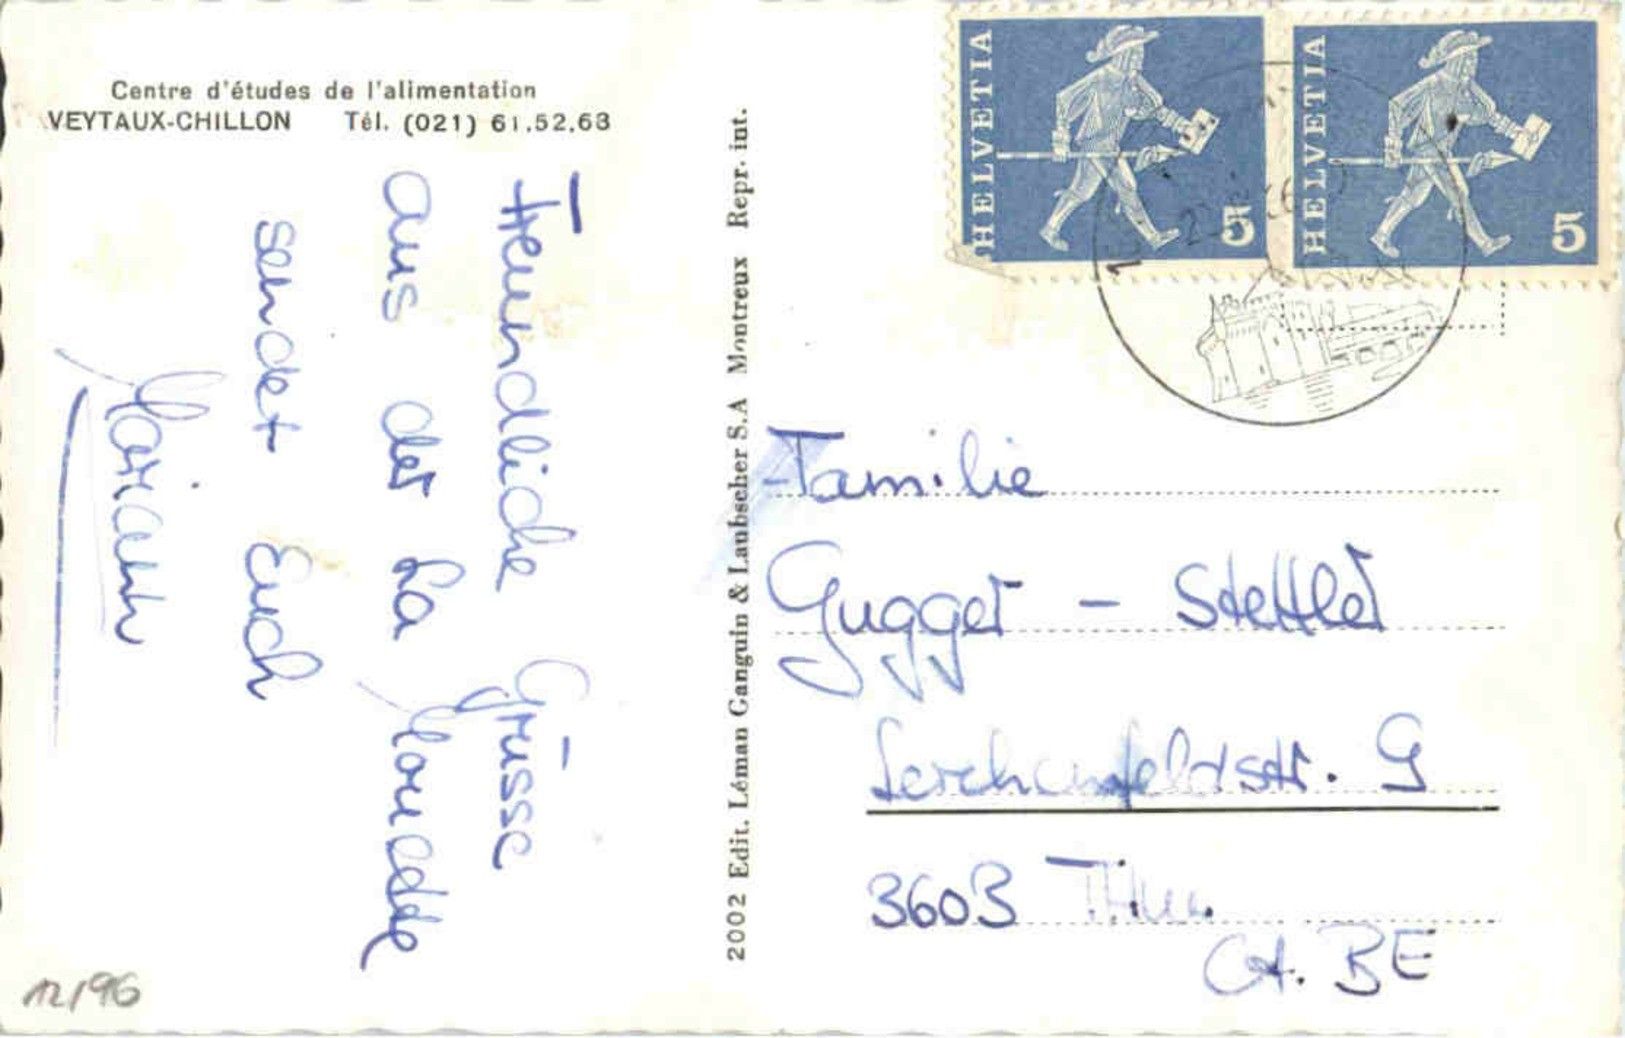 Centre d'études de l'alimentation
VEYTAUX-CHILLON Tél. (021) 61.52.63
Freundliche Grüsse
aus der La Mouette
sendet Euch
Mariann
12/96
2002 Edit. Léman Ganguin & Laubscher S.A Montreux Repr. int.
HELVETIA 5
HELVETIA 5
Familie
Gugger - Stettler
Lerchenfeldstr. 9
3603 Thun
Ct. BE